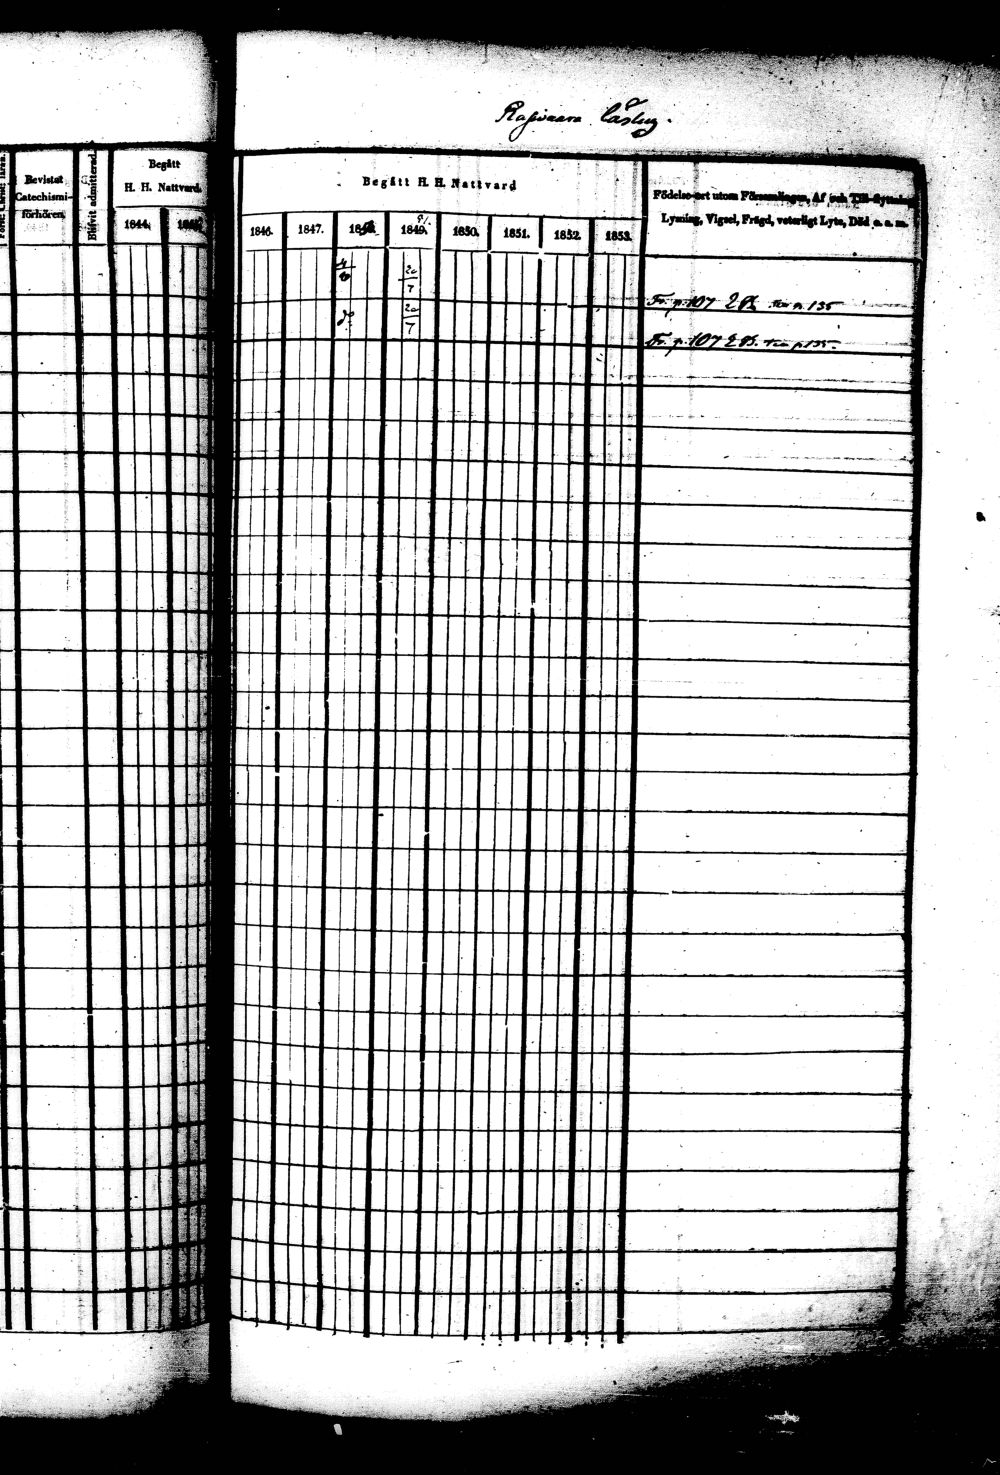 Rajivaara Låslug.
Bevistat
Catechismi-
förhören.
Blifvit admitterad
Begått
H. H. Nattvard.
1844.
Begått H. H. Nattvard
1846. 1847. 1848. 1849. 1850. 1851. 1852. 1853.
Födelse-ort utom Församlingen, Af och Till-flyttning
Lysning, Vigsel, Frägd, veterligt Lyte, Död m. m.
20/7
Fr. p. 107 p. 135
20/7
Fr. p. 107 p. 135.